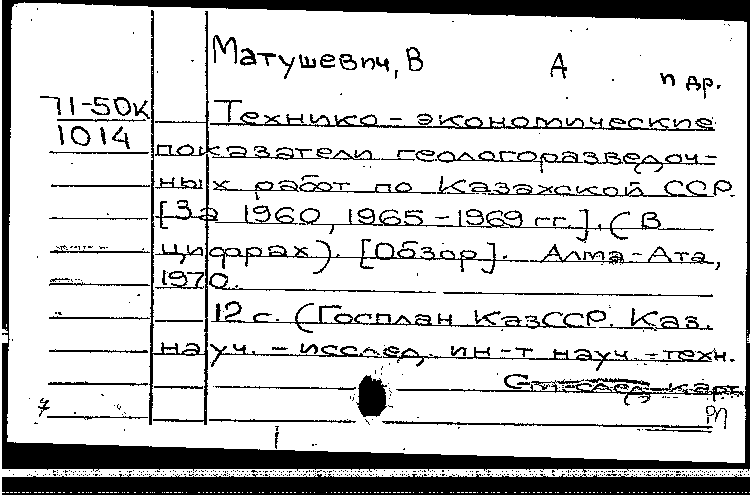 Матушевич, В А и др.
71-50к
1014
Технико-экономические
показатели геологоразведоч-
ных работ по Казахской ССР.
[За 1960, 1965-1969 гг.]. (В
цифрах). [Обзор]. Алма-Ата,
1970.
12 с. (Госплан КазССР. Каз.
науч.-исслед. ин-т науч.-техн.
См. след. карт
7